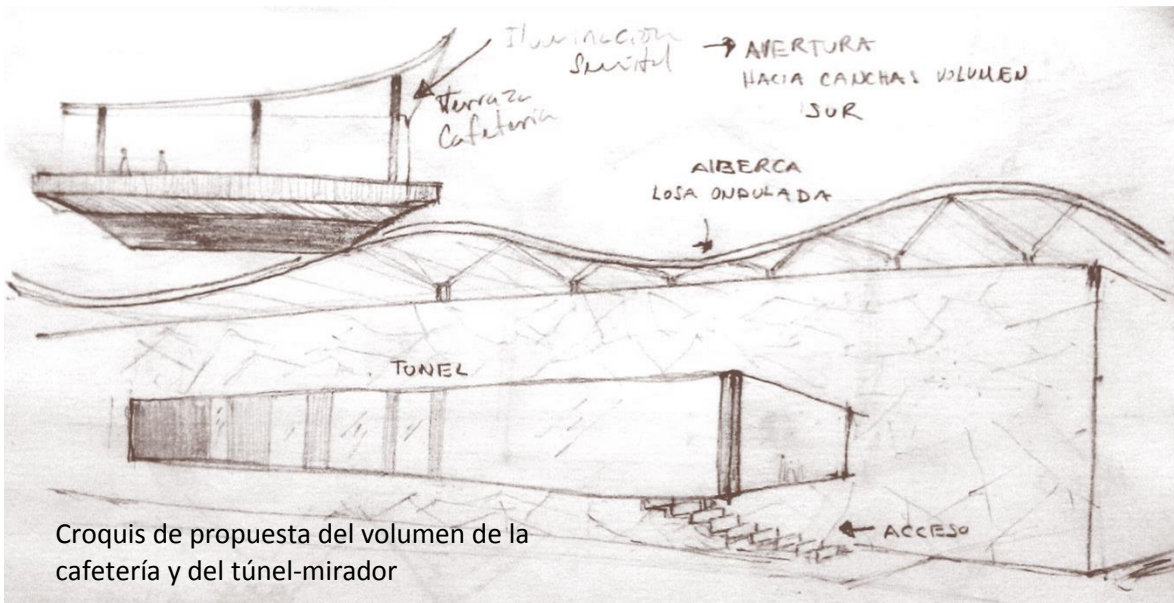 Iluminación
→ AVERTURA
HACIA CANCHAS VOLUMEN
SUR
Terraza
Cafeteria
ALBERCA
LOSA ONDULADA
TUNEL
← ACCESO
Croquis de propuesta del volumen de la
cafetería y del túnel-mirador